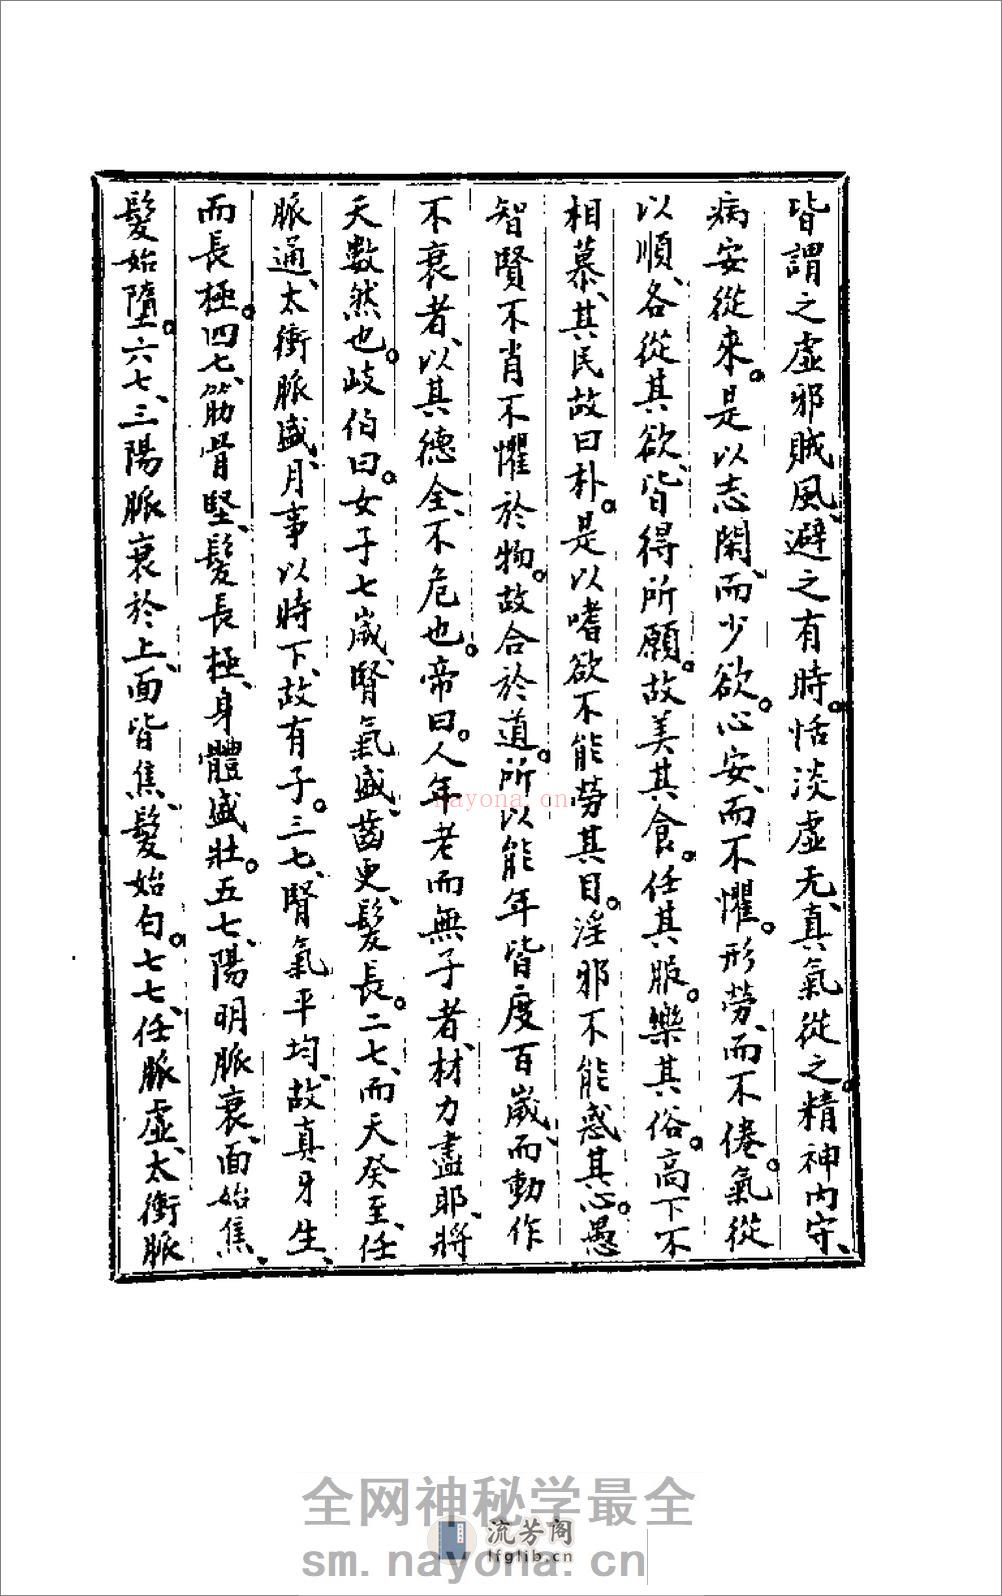 皆謂之虛邪賊風、避之有時。恬淡虛无、真氣從之。精神內守、
病安從來。是以志閑、而少欲。心安、而不懼。形勞、而不倦。氣從
以順、各從其欲、皆得所願。故美其食。任其服。樂其俗。高下不
相慕、其民故曰朴。是以嗜欲不能勞其目。淫邪不能惑其心。愚
智賢不肖不懼於物。故合於道。所以能年皆度百歲、而動作
不衰者、以其德全、不危也。帝曰。人年老而無子者、材力盡耶、將
天數然也。歧伯曰。女子七歲、腎氣盛、齒更、髮長。二七、而天癸至、任
脈通、太衝脈盛、月事以時下、故有子。三七、腎氣平均、故真牙生、
而長極。四七、筋骨堅、髮長極、身體盛壯。五七、陽明脈衰、面始焦、
髮始墮。六七、三陽脈衰於上、面皆焦、髮始白。七七、任脈虛、太衝脈
nayona.cn
全网神秘学最全
流芳阁
lfglib.cn
sm.nayona.cn